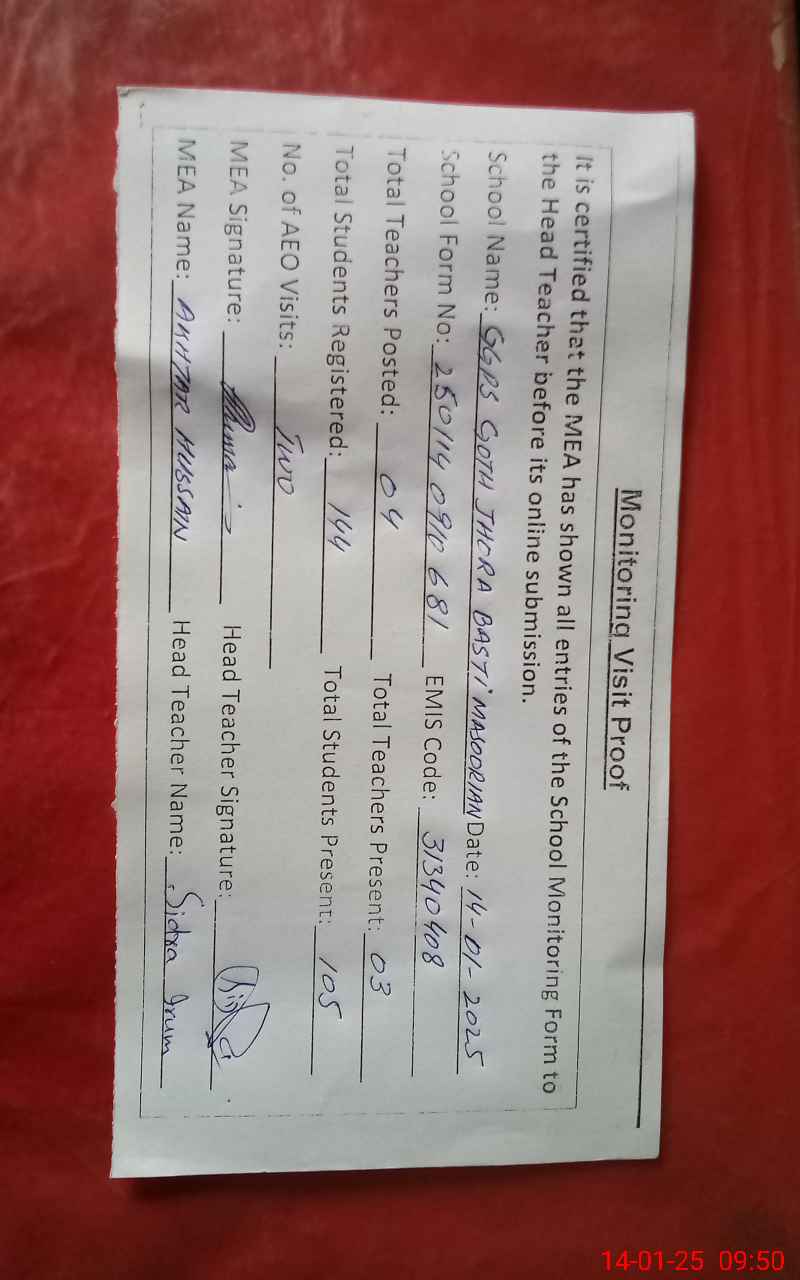 Monitoring Visit Proof
It is certified that the MEA has shown all entries of the School Monitoring Form to
the Head Teacher before its online submission.
School Name: GGPS GOTH JHORA BASTI MASOORIAN Date: 14-01-2025
School Form No: 250114 0910 681 EMIS Code: 31340408
Total Teachers Posted: 04 Total Teachers Present: 03
Total Students Registered: 144 Total Students Present: 105
No. of AEO Visits: TWO
MEA Signature: Head Teacher Signature:
MEA Name: AKHTAR HUSSAIN Head Teacher Name: Sidra Irum
14-01-25 09:50